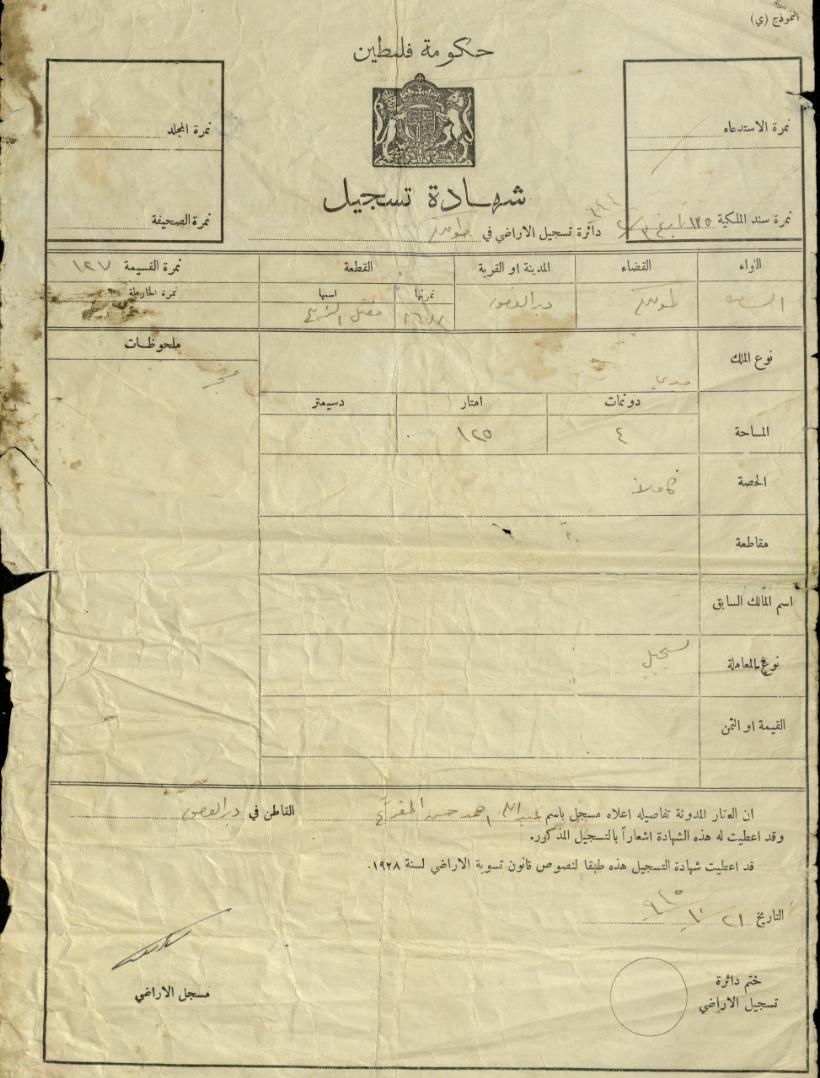 النموذج (ي)
حكومة فلسطين
نمرة الاستدعاء
نمرة المجلد
شهادة تسجيل
نمرة سند الملكية
نمرة الصحيفة
دائرة تسجيل الاراضي في طولكرم
اللواء
القضاء
المدينة او القرية
القطعة
نمرة القسيمة ١٢٧
نمرتها
اسمها
نمرة الخارطة
طولكرم
دير الغصون
نوع الملك
ملحوظات
دونمات
امتار
دسيمتر
المساحة
٤
١٢٥
الحصة
كاملاً
مقاطعة
اسم المالك السابق
نوع المعاملة
تسجيل
القيمة او الثمن
ان العقار المدونة تفاصيله اعلاه مسجل باسم عبد الله احمد حسن القاطن في دير الغصون
وقد اعطيت له هذه الشهادة اشعاراً بالتسجيل المذكور.
قد اعطيت شهادة التسجيل هذه طبقا لنصوص قانون تسوية الاراضي لسنة ١٩٢٨.
التاريخ ٢١/١٠/٩٤٥
ختم دائرة
تسجيل الاراضي
مسجل الاراضي